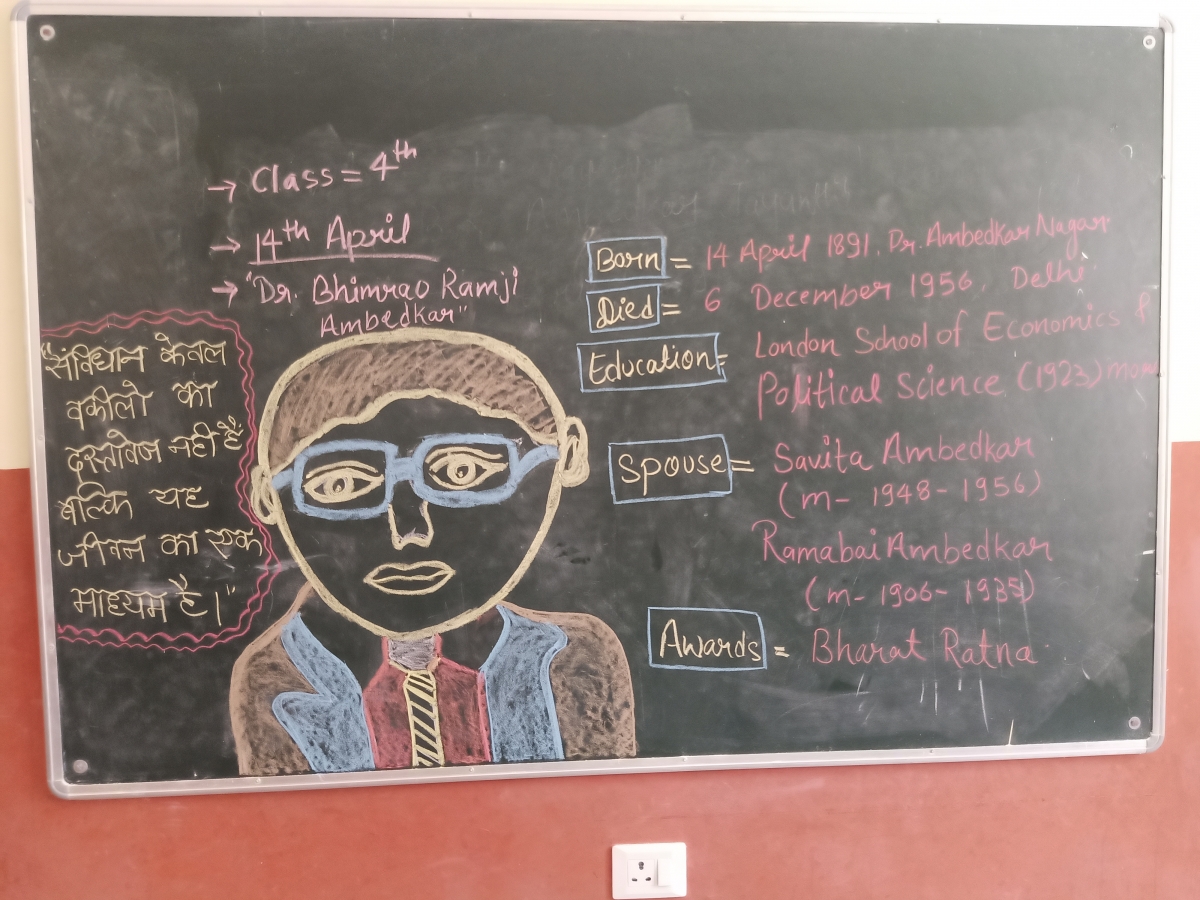 → Class = 4th
→ 14th April
→ "Dr. Bhimrao Ramji
Ambedkar"
"संविधान केवल
वकीलो का
दस्तावेज नही है
बल्कि यह
जीवन का एक
माध्यम है।"
Born = 14 April 1891, Dr. Ambedkar Nagar
Died = 6 December 1956, Delhi
Education = London School of Economics &
Political Science (1923) more
Spouse = Savita Ambedkar
(m- 1948-1956)
Ramabai Ambedkar
(m- 1906- 1935)
Awards = Bharat Ratna